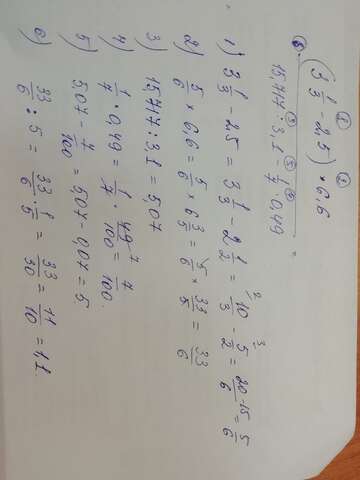 (3 1/3 - 2,5) * 6,6
15,717 : 3,1 - 1/7 · 0,49
1) 3 1/3 - 2,5 = 3 1/3 - 2 1/2 = 10/3 - 5/2 = 20-15/6 = 5/6
2) 5/6 × 6,6 = 5/6 × 6 3/5 = 5/6 × 33/5 = 33/6
3) 15,717 : 3,1 = 5,07
4) 1/7 · 0,49 = 1/7 · 49/100 = 7/100.
5) 5,07 - 7/100 = 5,07 - 0,07 = 5.
6) 33/6 : 5 = 33/6 · 1/5 = 33/30 = 11/10 = 1,1.